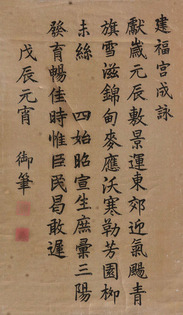 建福宮成詠
獻歲元辰數景運東郊迎氣颺青
旗雪滋錦甸麥應沃寒勒芳園柳
未絲 四始昭宣生庶彙三陽
發育暢佳時惟臣民曷敢遲
戊辰元宵 御筆